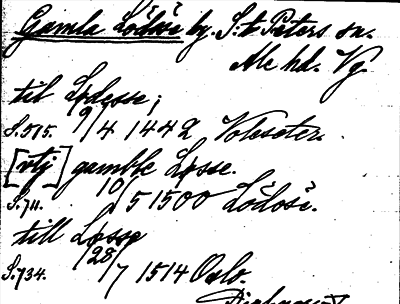 Gamla Lödöse by. S:t Peters sn.
Ale hd. Vg.
til Lødesse;
S. 515. 9/4 1442 Voteseter.
[vtj] gamble Løsse.
S. 711. 10/5 1500 Lödöse.
till Løsse
S. 734. 28/7 1514 Oslo.